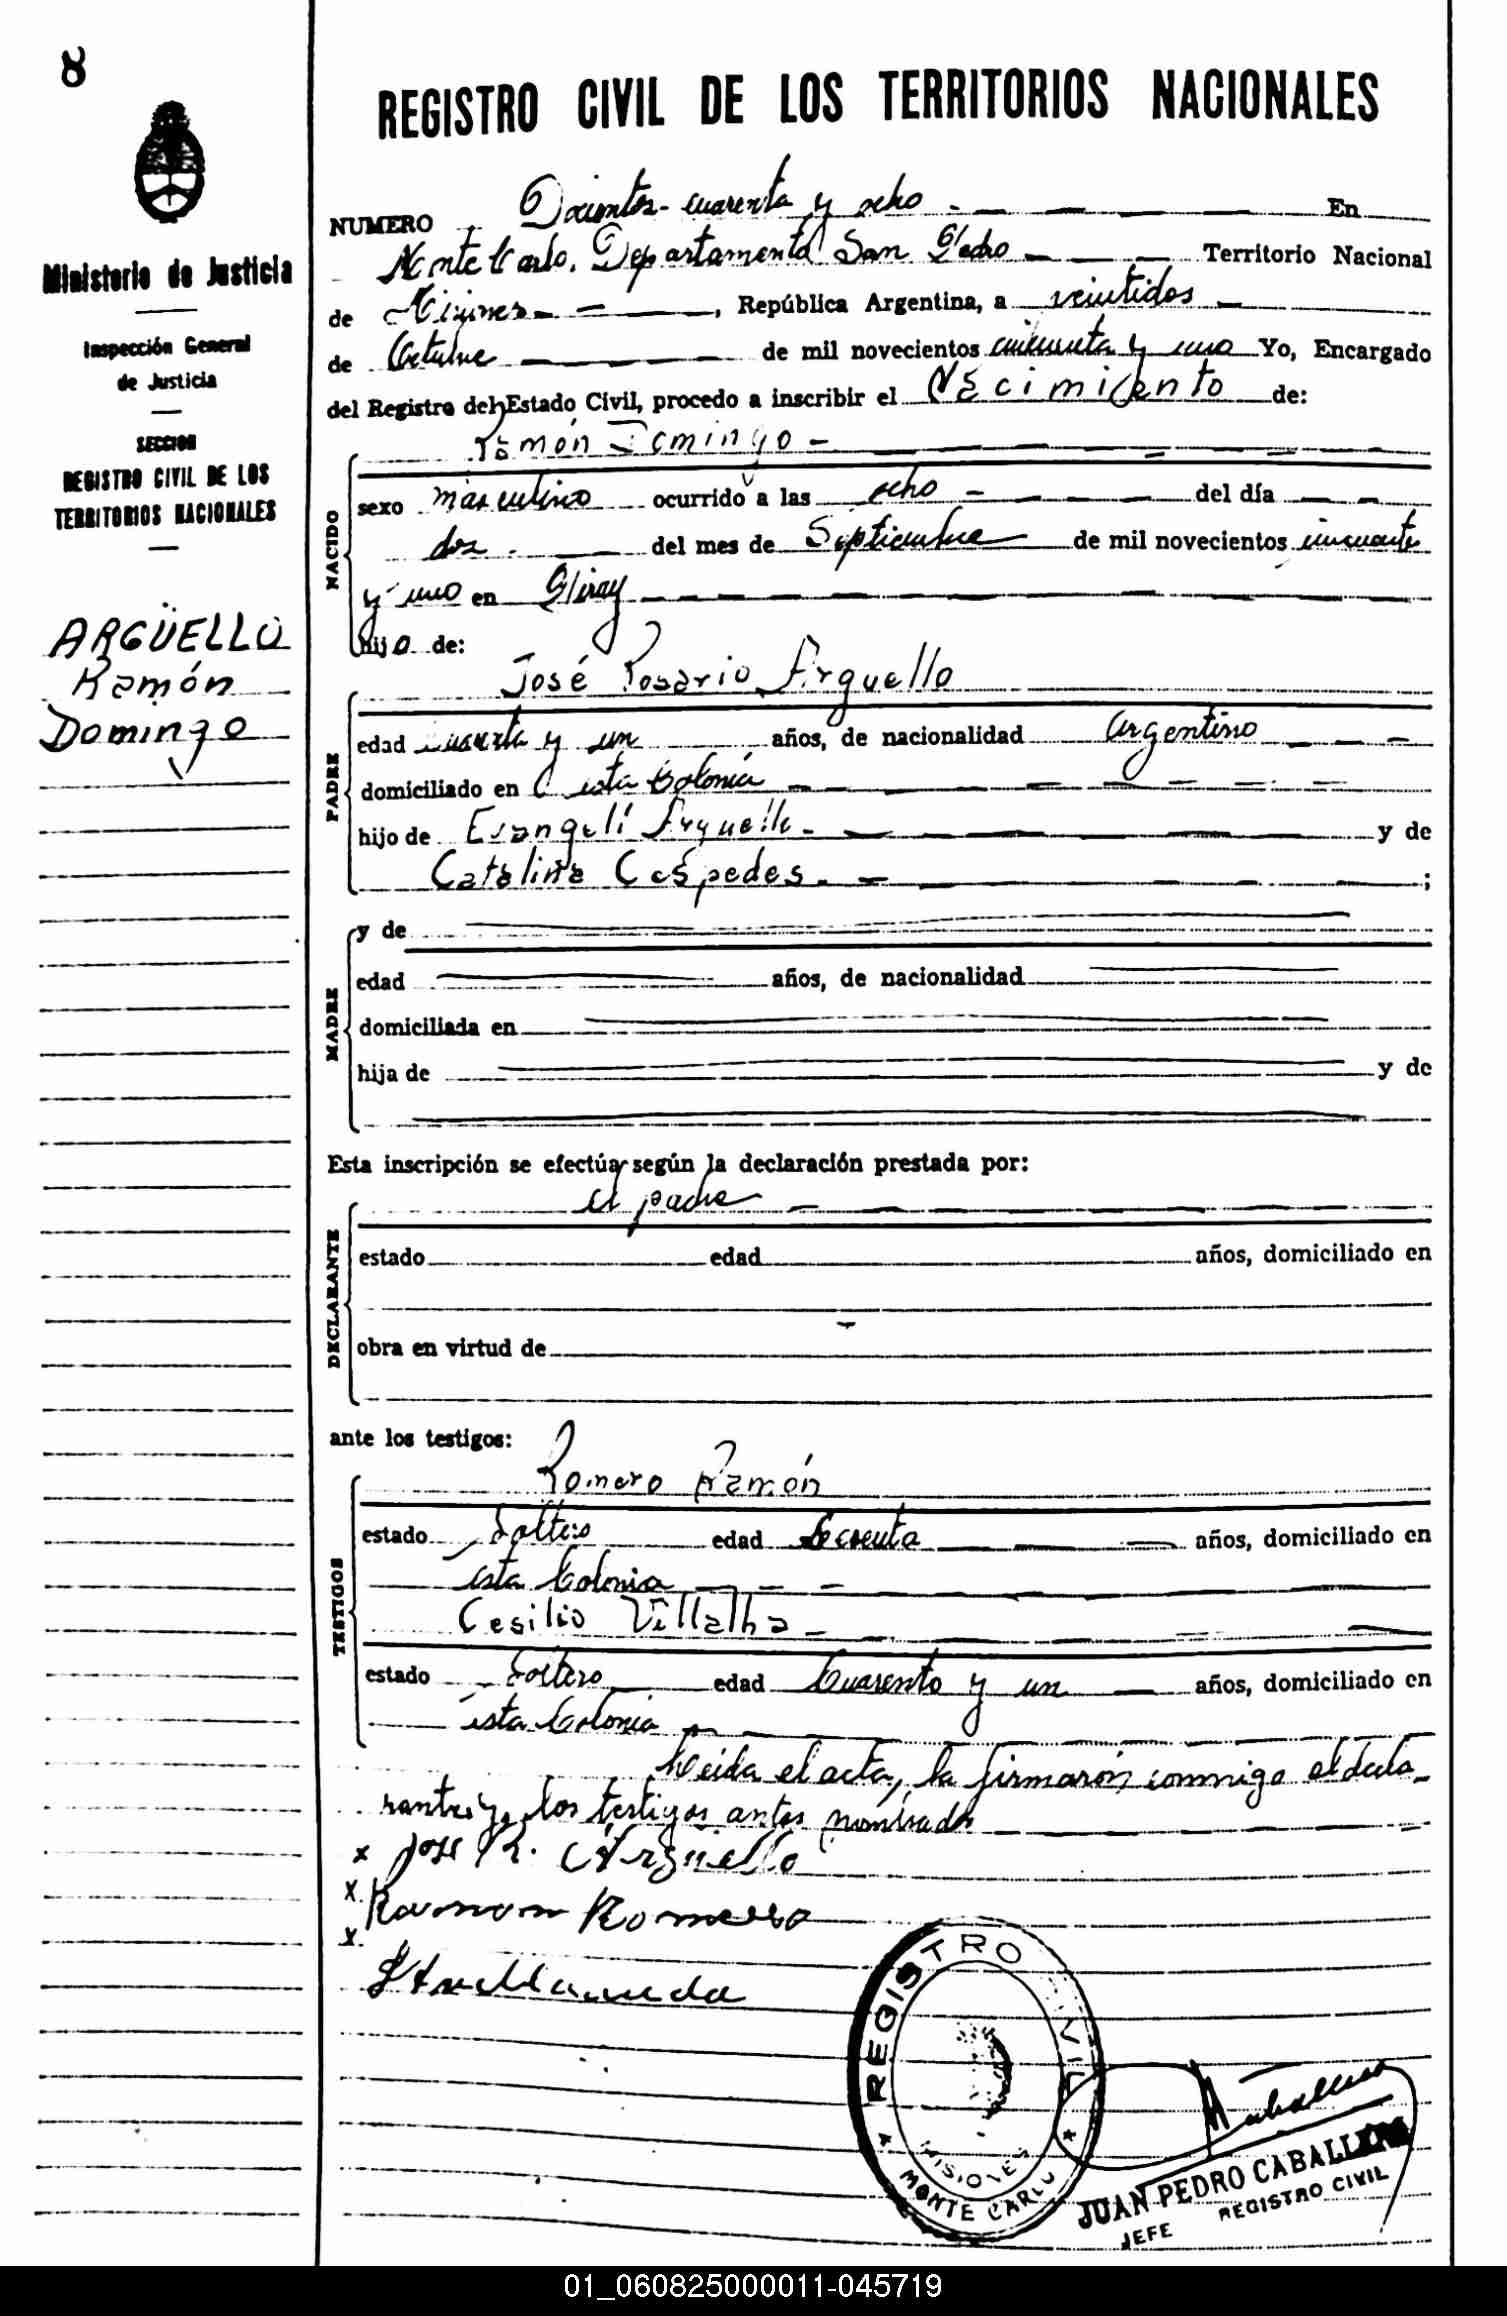 8
REGISTRO CIVIL DE LOS TERRITORIOS NACIONALES
Ministerio de Justicia
Inspección General
de Justicia
SECCION
REGISTRO CIVIL DE LOS
TERRITORIOS NACIONALES
ARGÜELLO
Ramón
Domingo
NUMERO Docientos cuarenta y ocho En
Monte Carlo. Departamento San Pedro Territorio Nacional
de Misiones, República Argentina, a veintidos
de Octubre de mil novecientos cincuenta y uno Yo, Encargado
del Registro del Estado Civil, procedo a inscribir el Nacimiento de:
Ramón Domingo
NACIDO
sexo masculino ocurrido a las ocho del día
dos del mes de Septiembre de mil novecientos cincuenta
y uno en
hijo de:
José Rosario Arguello
PADRE
edad cuarenta y un años, de nacionalidad Argentino
domiciliado en esta Colonia
hijo de Evangelí Arguello y de
Catalina Céspedes ;
MADRE
y de
edad años, de nacionalidad
domiciliada en
hija de y de
Esta inscripción se efectúa según la declaración prestada por:
el padre
DECLARANTE
estado edad años, domiciliado en
obra en virtud de
ante los testigos:
Romero Ramón
TESTIGOS
estado Soltero edad años, domiciliado en
ésta Colonia
Cesilio Villalba
estado Soltero edad Cuarenta y un años, domiciliado en
ésta Colonia
Leida el acta, la firmarón conmigo el decla-
rante y los testigos antes nombrados
x Jose R. Arguello
x Ramon Romero
x
REGISTRO CIVIL
MISIONES
* MONTE CARLO *
JUAN PEDRO CABALLERO
JEFE REGISTRO CIVIL
01_060825000011-045719